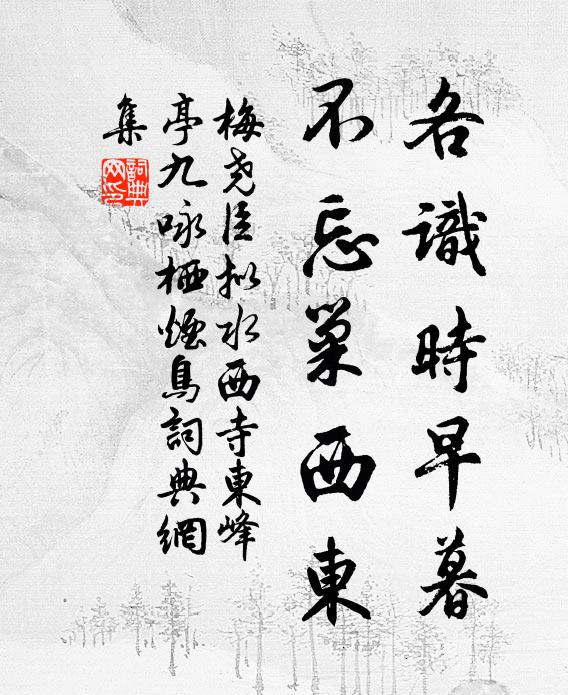 各識時早暮
不忘巢西東
梅堯臣擬水西寺東峰
亭九咏栖煙鳥詞典網
集
詞典
網印